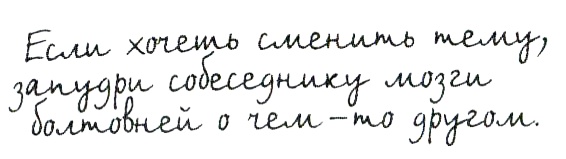 Если хочешь сменить тему,
запудри собеседнику мозги
болтовней о чем-то другом.